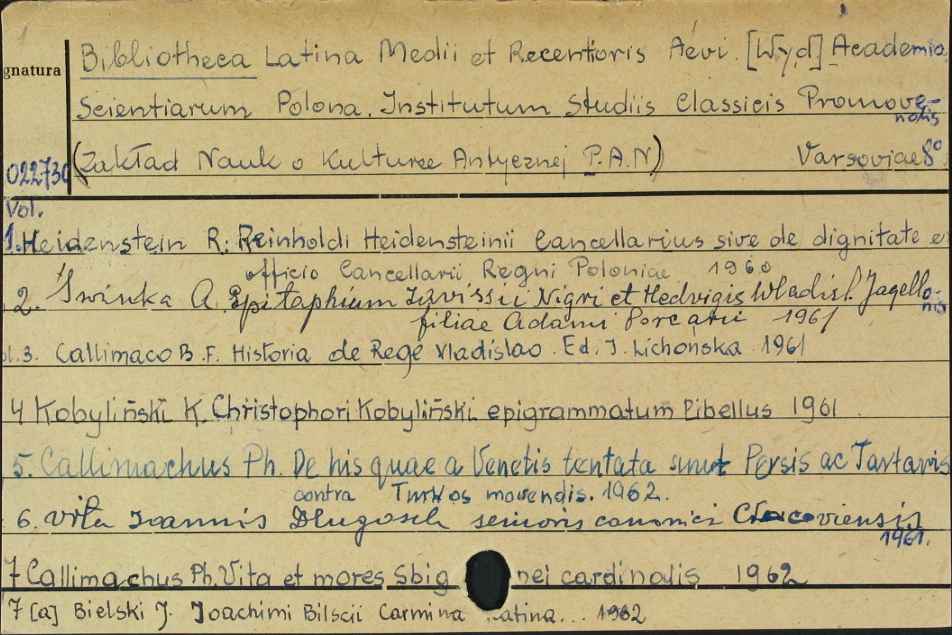 Bibliotheca Latina Medii et Recentioris Aevi. [Wyd] Academia
gnatura
Scientiarum Polona. Institutum Studiis Classicis Promove-
ndis
022730 (Zakład Nauk o Kulturze Antycznej P.A.N) Varsoviae 8°
Vol.
1. Heidenstein R: Reinholdi Heidensteinii Cancellarius sive de dignitate e
officio Cancellarii Regni Poloniae 1960
2. Świnka A. Epitaphium Zavissii Nigri et Hedvigis Wladisl. Jagello-
nis
filiae Adami Porcarii 1961
ol.3. Callimaco B.F. Historia de Rege Vladislao. Ed. I. Lichońska 1961
4 Kobyliński K. Christophori Kobyliński epigrammatum libellus 1961
5. Callimachus Ph. De his quae a Venetis tentata sunt Persis ac Tartaris
contra Turkos movendis. 1962.
6. Vita Joannis Dlugosch senioris canonici Cracoviensis
1961.
7 Callimachus Ph. Vita et mores Sbig nei cardinalis 1962
7[a] Bielski J. Joachimi Bilscii Carmina Latina... 1962